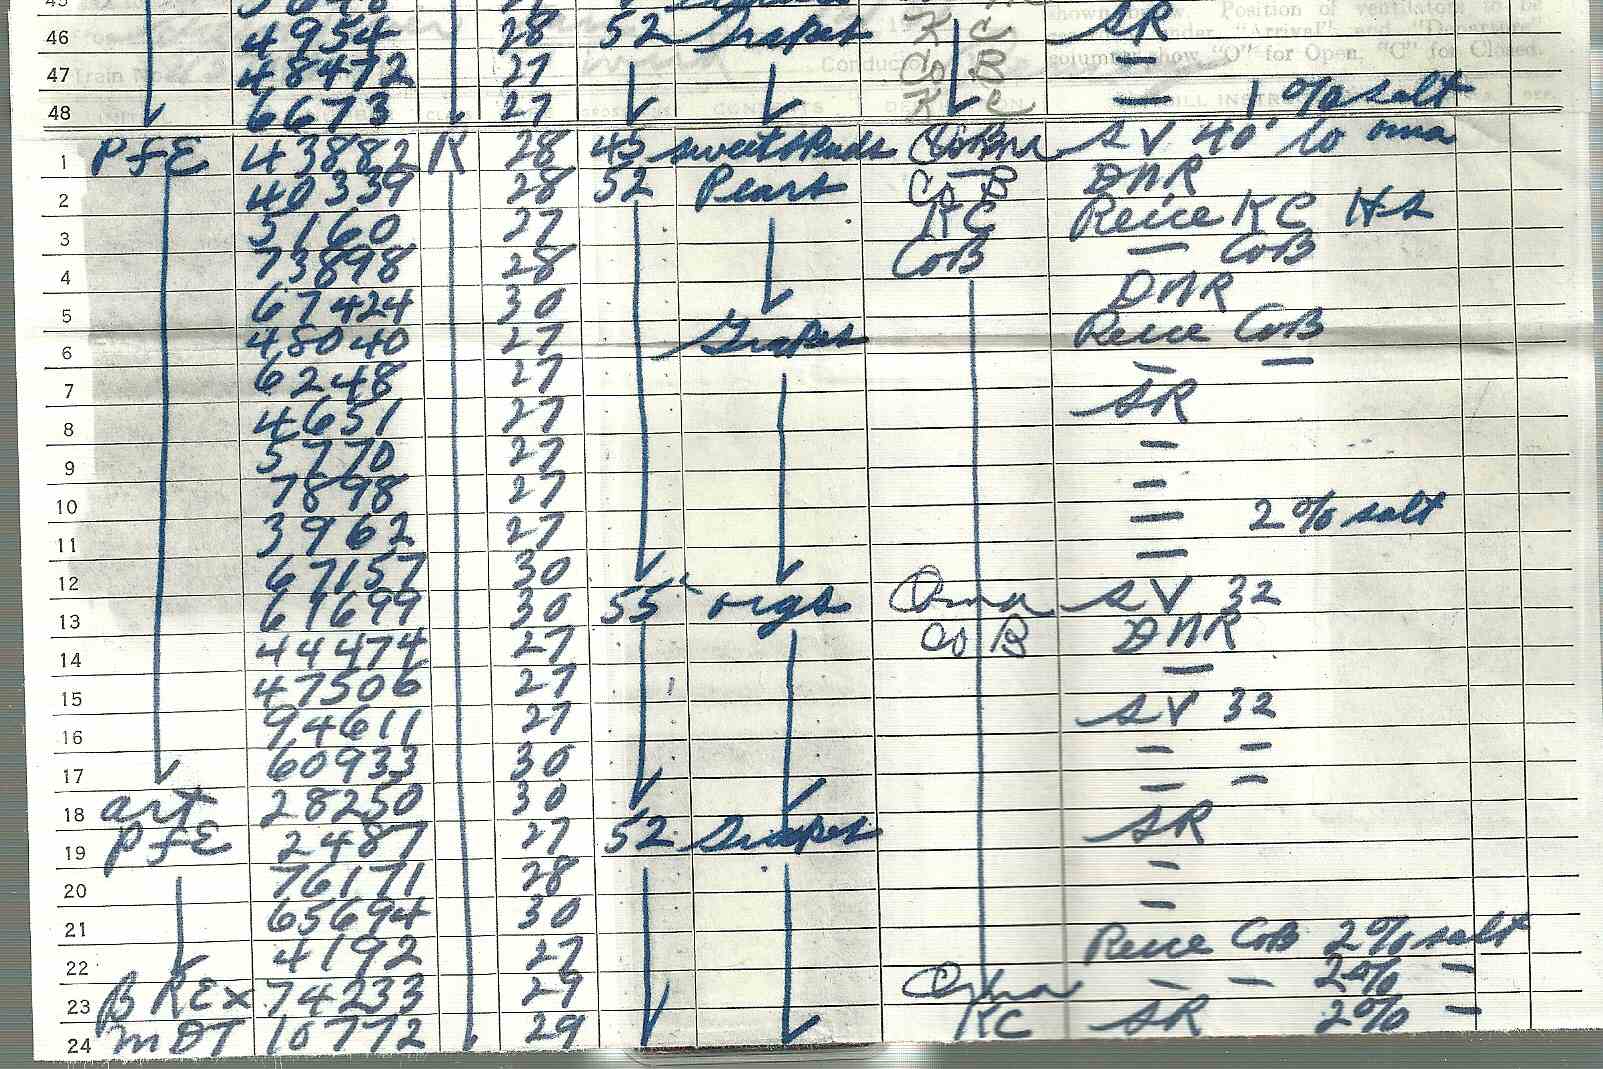 46 4954 28 52 Grapes K C SR
47 48472 27 Co B —
48 6673 27 K C — 1% salt
1 PFE 43882 R 28 45 sweet spuds SV 40° to oma
2 40339 28 52 Pears Co B DNR
3 5160 27 KC Reice KC Hs
4 73898 28 CoB — CoB
5 67424 30 DNR
6 48040 27 Grapes Reice CoB
7 6248 27 — —
8 4651 27 SR
9 5770 27 —
10 7898 27 —
11 3962 27 — 2% salt
12 67157 30 —
13 61699 30 55 orgs Oma SV 32
14 44474 27 Co B DNR
15 47506 27 —
16 94611 27 SV 32
17 60933 30 — —
18 art 28250 30 — —
19 PFE 2487 27 52 Grapes SR
20 76171 28 —
21 65694 30 —
22 4192 27 Reice CoB 2% salt
23 BREX 74233 29 Oma — — 2% —
24 MDT 10772 29 KC SR 2% —
shown below. Position of ventilators to be
under "Arrival" and "Departure"
column show "O" for Open, "C" for Closed.
Train No.